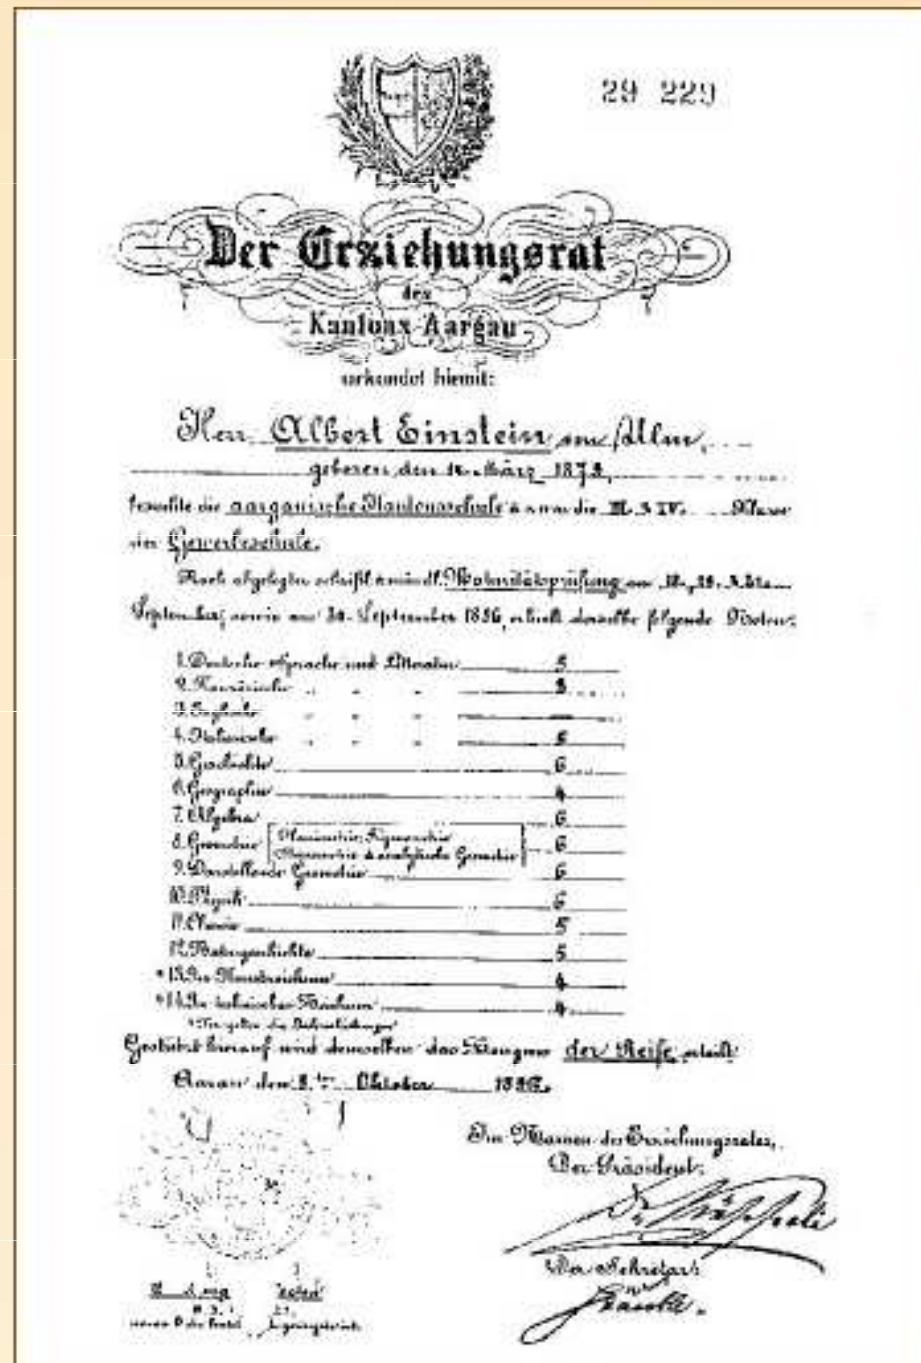 29 229
Der Erziehungsrat
des
Kantons Aargau
urkundet hiemit:
Herr Albert Einstein von Ulm,
geboren den 14. März 1879,
besuchte die aargauische Kantonsschule & zwar die III. & IV. Klasse
der Gewerbeschule.
Nach abgelegter schriftl. & mündl. Maturitätsprüfung am 18., 19. & 21.
September, sowie am 30. September 1896, erhielt derselbe folgende Noten:
1. Deutsche Sprache und Litteratur 5
2. Französische " " " 3
3. Englische " " " —
4. Italienische " " " 5
5. Geschichte 6
6. Geographie 4
7. Algebra 6
8. Geometrie [Planimetrie, Trigonometrie
Stereometrie & analytische Geometrie] 6
9. Darstellende Geometrie 6
10. Physik 6
11. Chemie 5
12. Naturgeschichte 5
* 13. Im Kunstzeichnen 4
* 14. Im technischen Zeichnen 4
* Hier gelten die Jahresleistungen
Gestützt hierauf wird demselben das Zeugnis der Reife erteilt.
Aarau den 3ten Oktober 1896.
Im Namen des Erziehungsrates,
Der Präsident:
Der Sekretär: